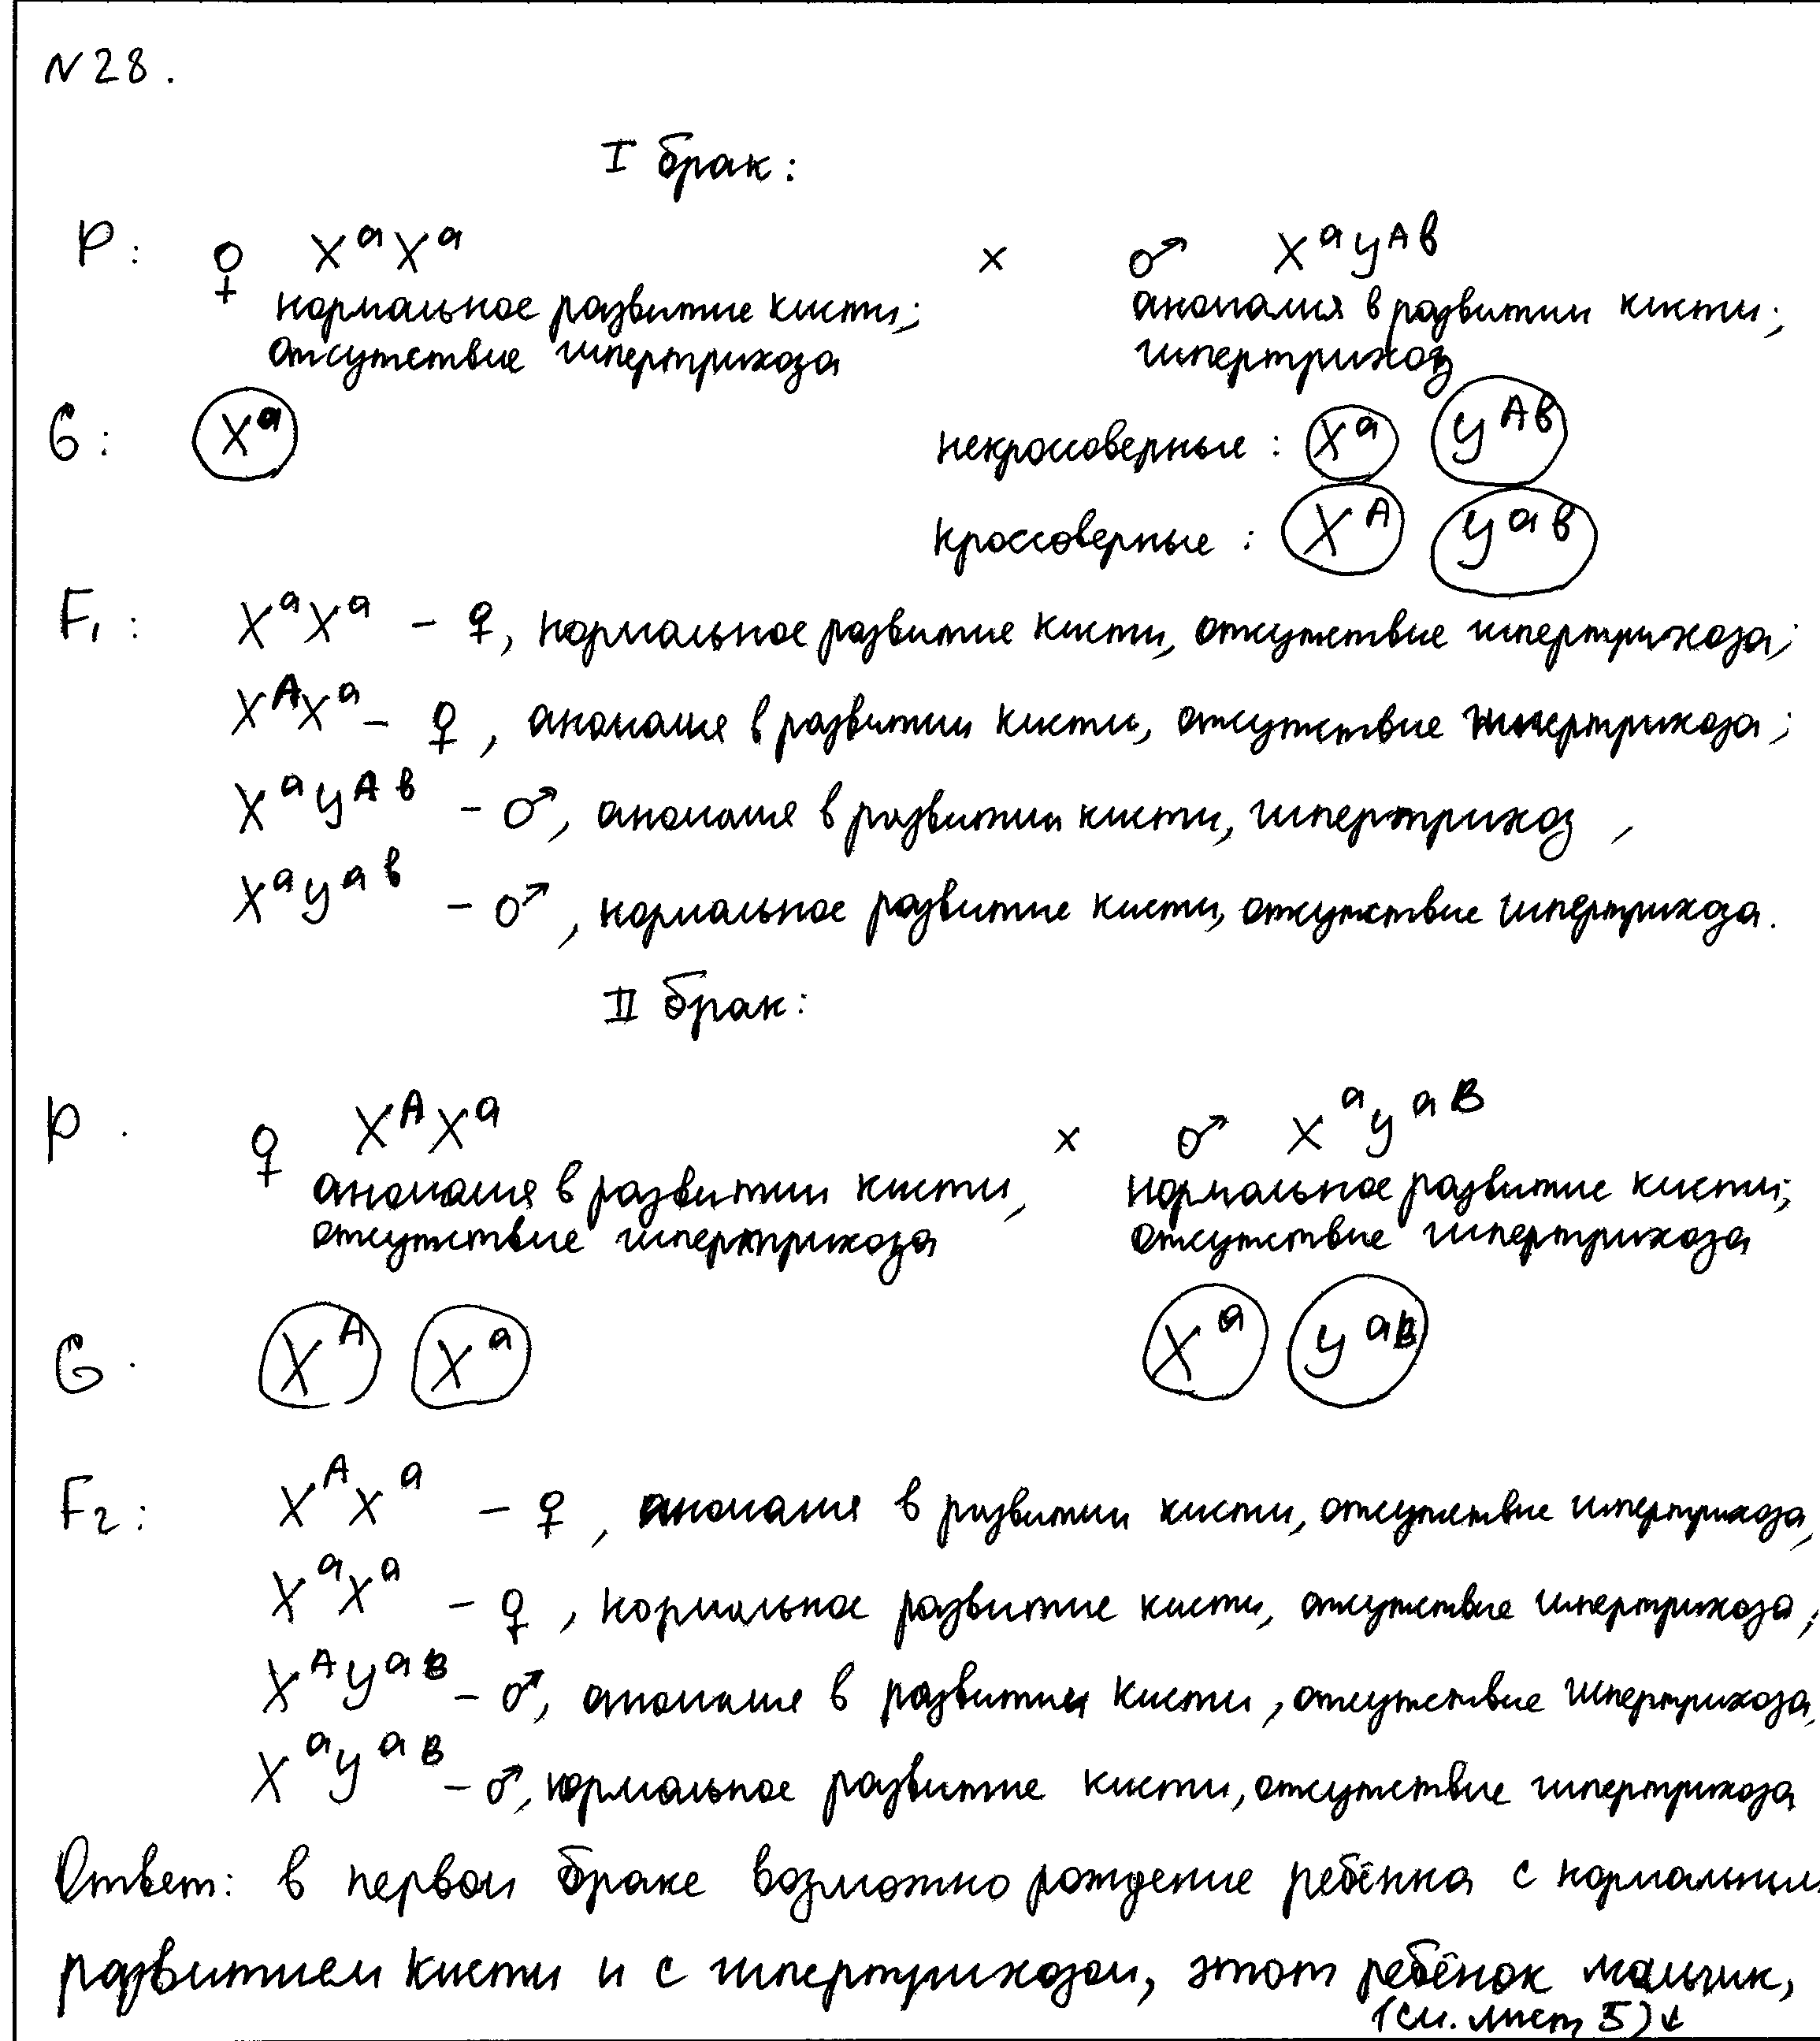 N28.
I брак:
P: ♀ XᵃXᵃ × ♂ XᵃYᴬᵇ
нормальное развитие кисти; аномалия в развитии кисти;
отсутствие гипертрихоза гипертрихоз
G: Xᵃ некроссоверные: Xᵃ Yᴬᵇ
кроссоверные: Xᴬ Yᵃᵇ
F₁: XᵃXᵃ - ♀, нормальное развитие кисти, отсутствие гипертрихоза;
XᴬXᵃ - ♀, аномалия в развитии кисти, отсутствие гипертрихоза;
XᵃYᴬᵇ - ♂, аномалия в развитии кисти, гипертрихоз,
XᵃYᵃᵇ - ♂, нормальное развитие кисти, отсутствие гипертрихоза.
II брак:
P. ♀ XᴬXᵃ × ♂ XᵃYᵃᴮ
аномалия в развитии кисти, нормальное развитие кисти;
отсутствие гипертрихоза отсутствие гипертрихоза
G. Xᴬ Xᵃ Xᵃ Yᵃᴮ
F₂: XᴬXᵃ - ♀, аномалия в развитии кисти, отсутствие гипертрихоза,
XᵃXᵃ - ♀, нормальное развитие кисти, отсутствие гипертрихоза;
XᴬYᵃᴮ - ♂, аномалия в развитии кисти, отсутствие гипертрихоза,
XᵃYᵃᴮ - ♂, нормальное развитие кисти, отсутствие гипертрихоза
Ответ: в первом браке возможно рождение ребёнка с нормальным
развитием кисти и с гипертрихозом, этот ребёнок мальчик,
(см. лист 5)↓